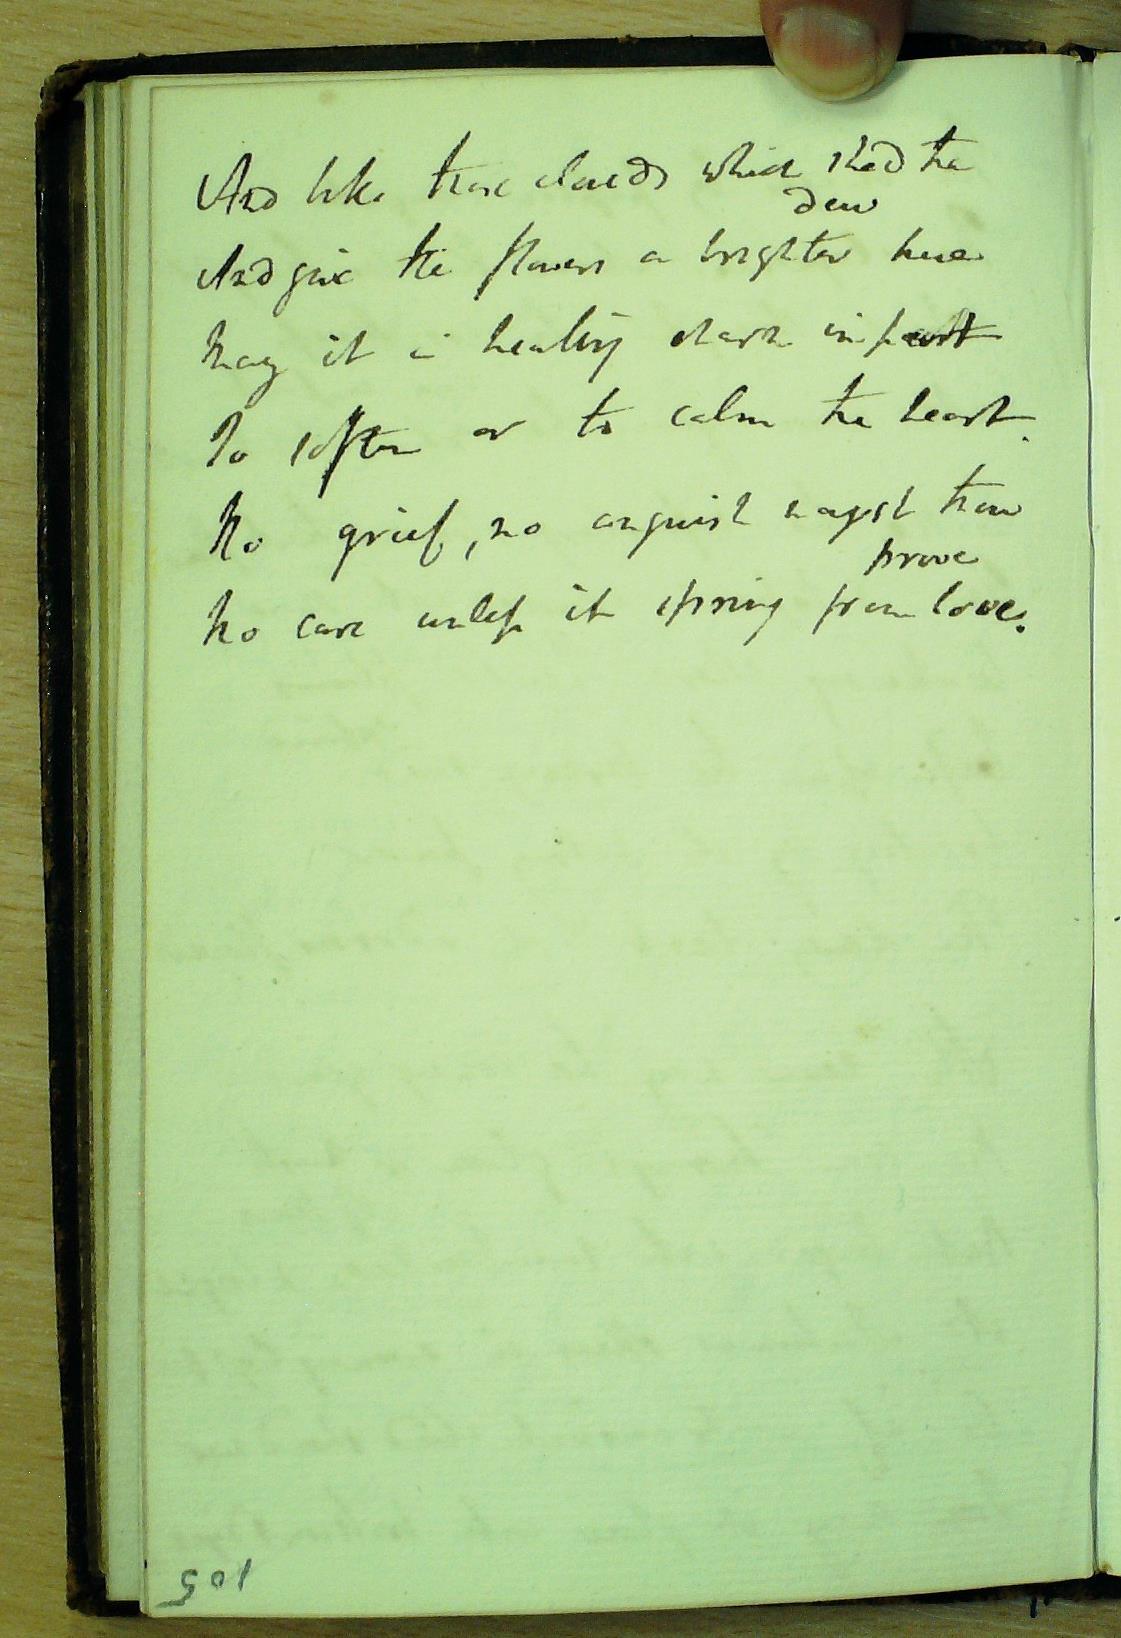 And like those clouds which shed the
dew
And give the flowers a brighter hue
May it a healing charm impart
To soften or to calm the heart.
No grief, no anguish mayst thou
prove
No care unless it spring from love.
105